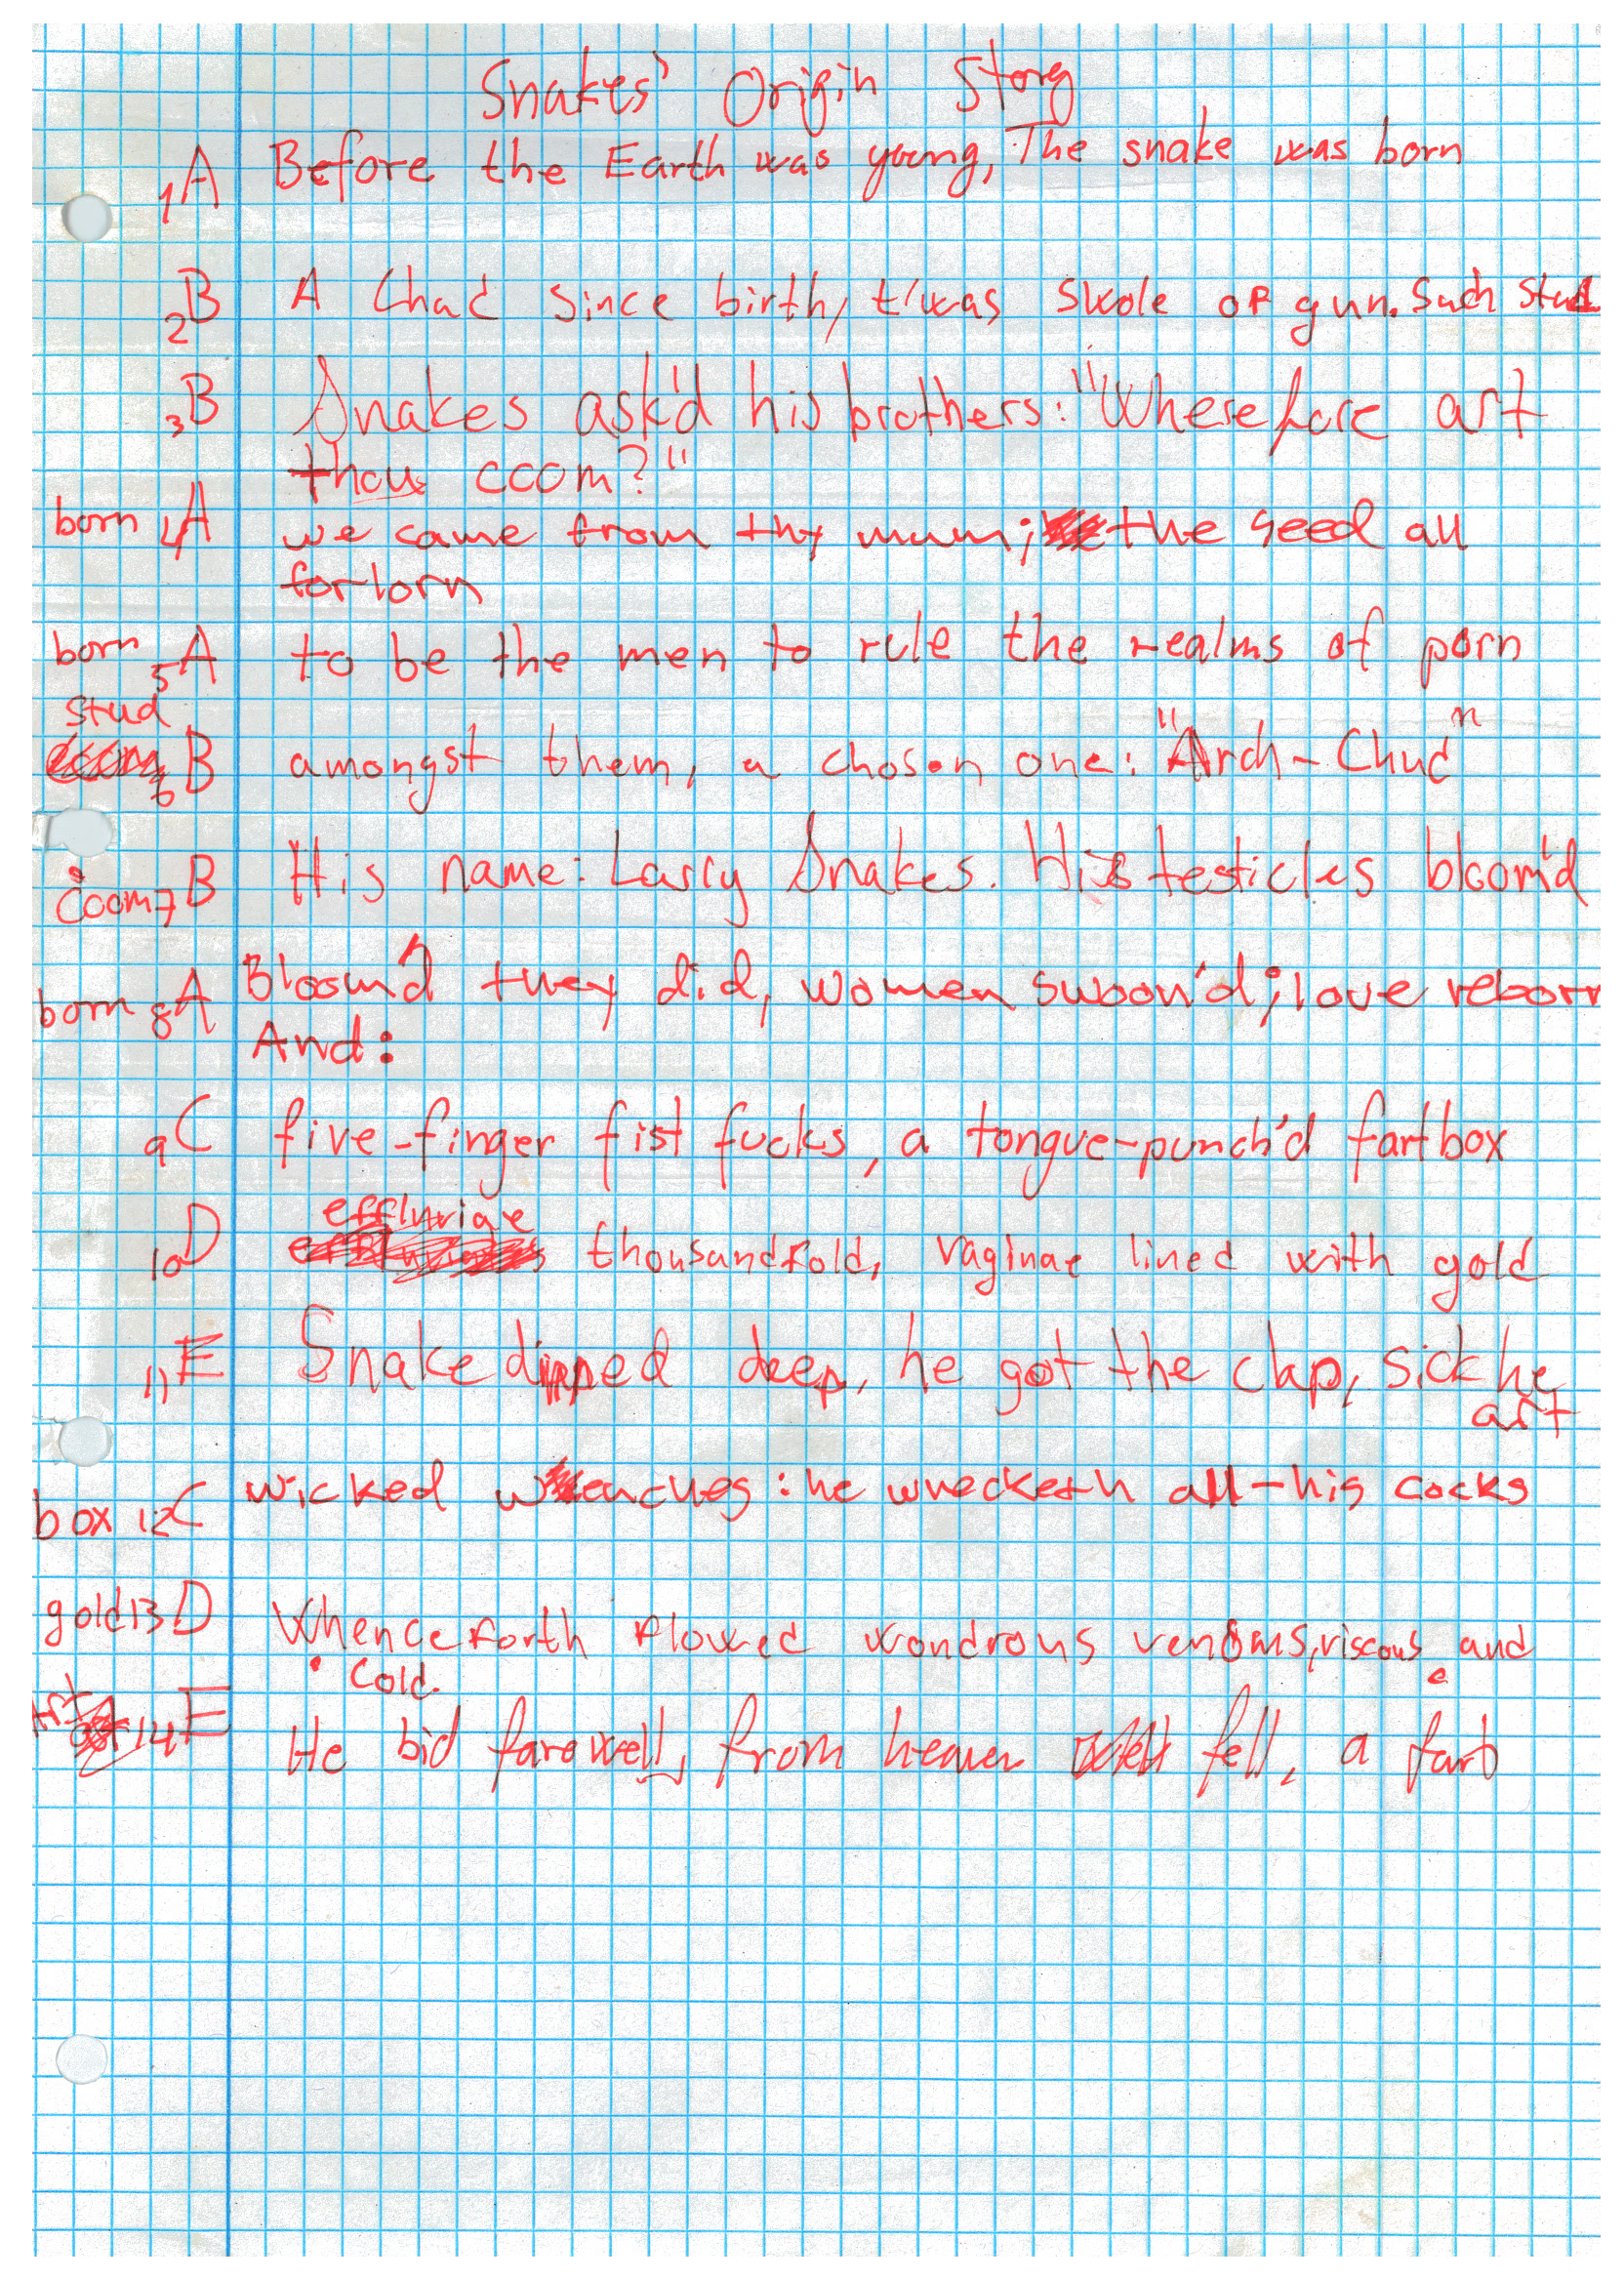 Snakes' Origin Story
1A Before the Earth was young, The snake was born
2B A Chad since birth, t'was swole of gun. Such stud
3B Snakes ask'd his brothers: "Wherefore art
thou coom?"
born 4A we came from thy mum; the seed all
forlorn
born 5A to be the men to rule the realms of porn
stud
6B amongst them, a chosen one: "Arch-Chud"
coom 7B His name: Larry Snakes. His testicles bloom'd
born 8A Bloom'd they did, women swoon'd; love reborn
And:
9C five-finger fist fucks, a tongue-punch'd fartbox
effluviae
10D thousandfold, vaginae lined with gold
11E Snake dipped deep, he got the clap, sick he
art
box 12C wicked wenches: he wrecketh all - his cocks
gold 13D Whenceforth flowed wondrous venoms, viscous and
cold.
art 14E He bid farewell, from heaven fell, a fart